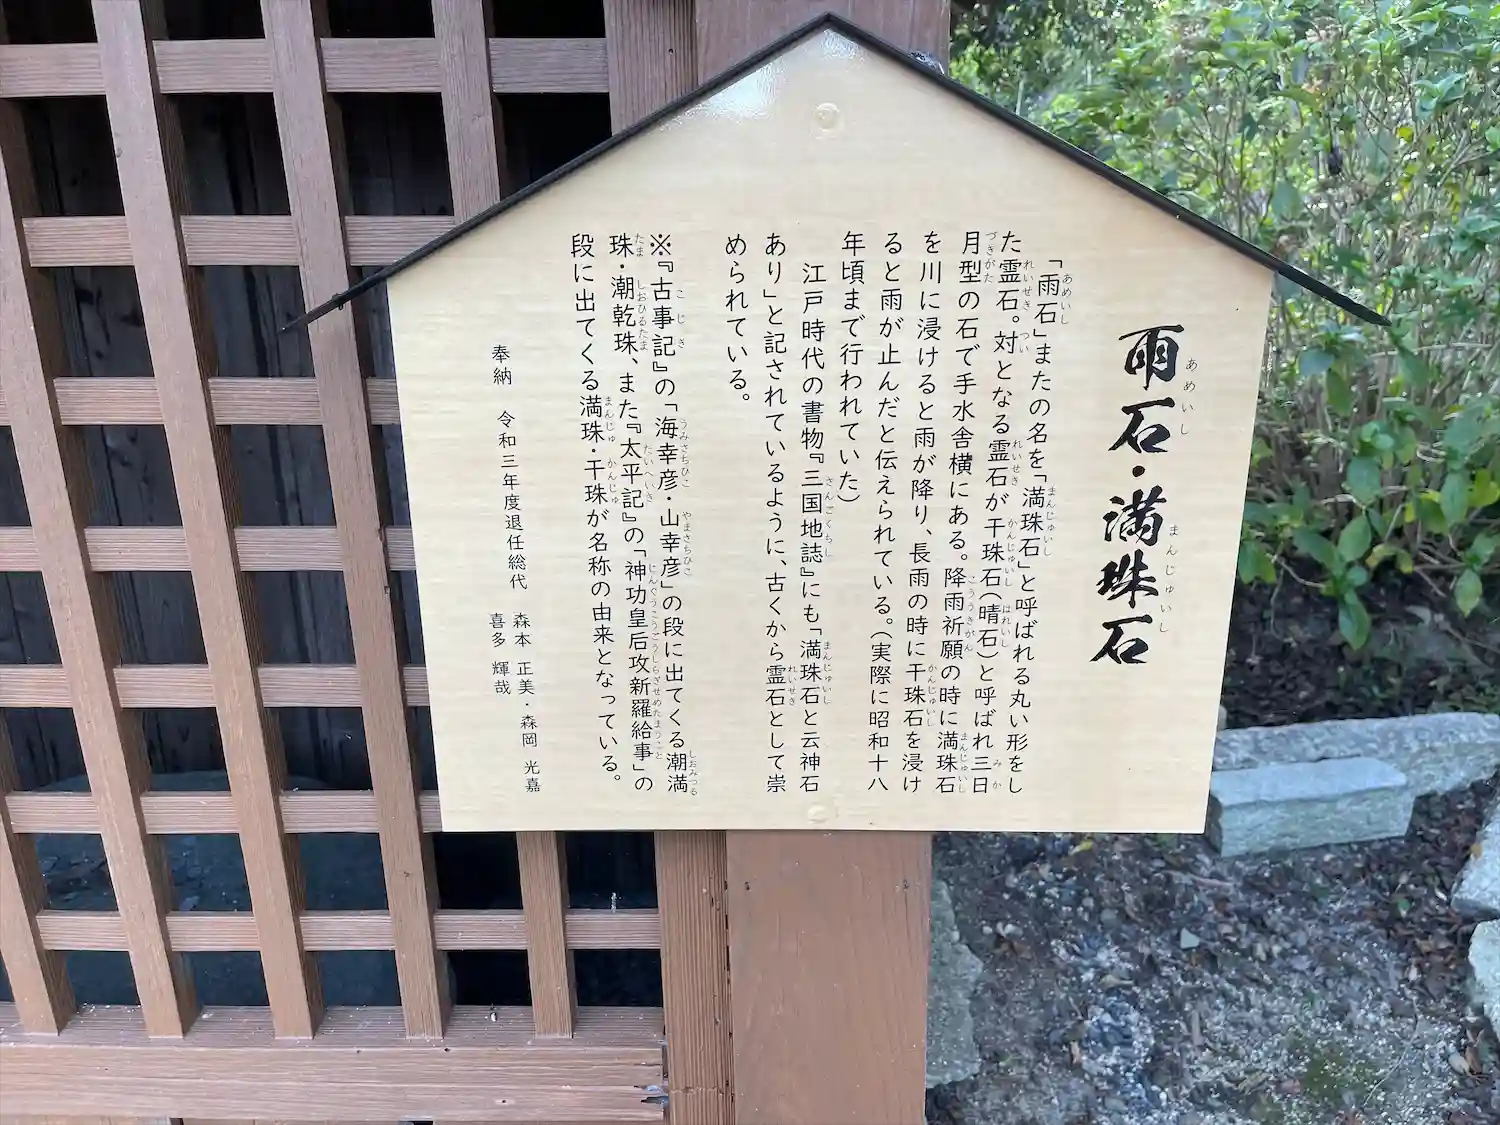 雨石・満珠石
あめいし
まんじゅいし
「雨石」またの名を「満珠石」と呼ばれる丸い形をし
た霊石。対となる霊石が干珠石（晴石）と呼ばれ三日
月型の石で手水舎横にある。降雨祈願の時に満珠石
を川に浸けると雨が降り、長雨の時に干珠石を浸け
ると雨が止んだと伝えられている。（実際に昭和十八
年頃まで行われていた）
江戸時代の書物『三国地誌』にも「満珠石と云神石
あり」と記されているように、古くから霊石として崇
められている。
※『古事記』の「海幸彦・山幸彦」の段に出てくる潮満
珠・潮乾珠、また『太平記』の「神功皇后攻新羅給事」の
段に出てくる満珠・干珠が名称の由来となっている。
奉納 令和三年度退任総代 森本 正美・森岡 光嘉
喜多 輝哉